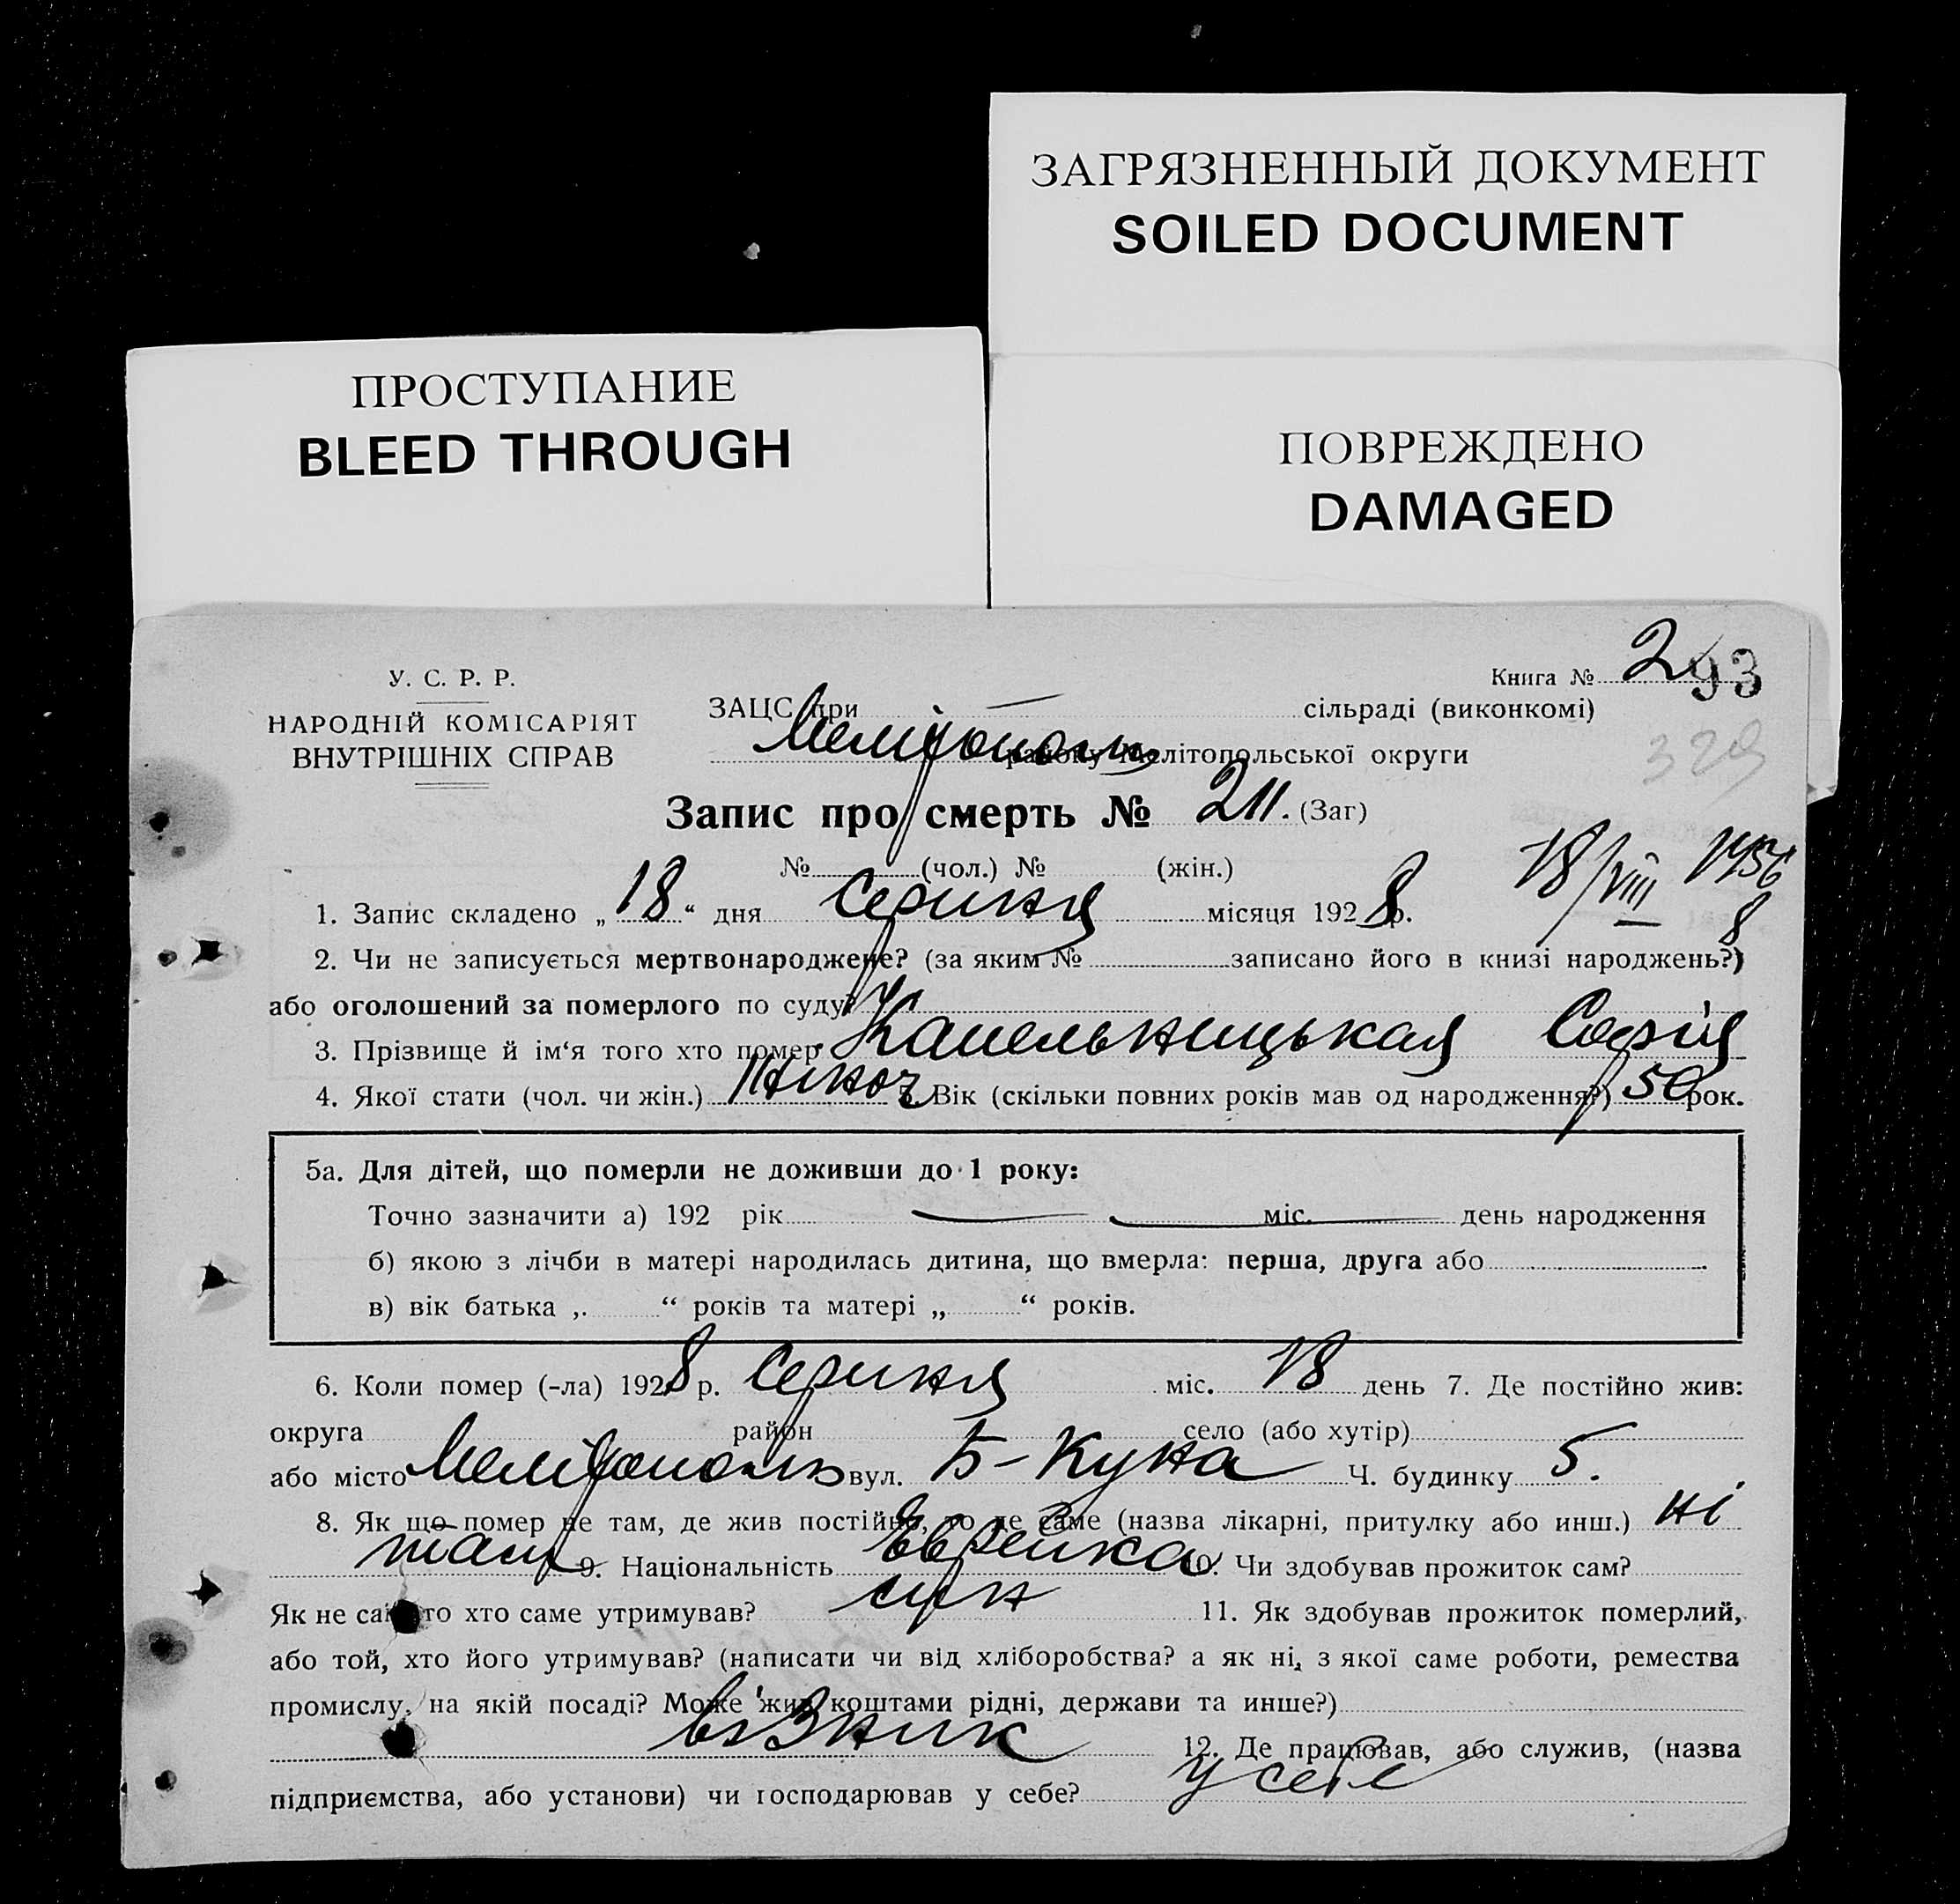 ЗАГРЯЗНЕННЫЙ ДОКУМЕНТ
SOILED DOCUMENT
ПРОСТУПАНИЕ
BLEED THROUGH
ПОВРЕЖДЕНО
DAMAGED
Книга № 2
93
У. С. Р. Р.
НАРОДНІЙ КОМІСАРІЯТ
ВНУТРІШНІХ СПРАВ
ЗАЦС при сільраді (виконкомі)
Мелітополь району Мелітопольської округи
329
Запис про смерть № 211. (Заг)
№ (чол.) № (жін.)
18/VIII 8
1. Запис складено „ 18 “ дня Серпня місяця 1928 р.
2. Чи не записується мертвонароджене? (за яким № записано його в книзі народжень?)
або оголошений за померлого по суду?
3. Прізвище й ім‘я того хто помер Капельницькая Софія
4. Якої стати (чол. чи жін.) жіноч 5. Вік (скільки повних років мав од народження?) 50 рок.
5а. Для дітей, що померли не доживши до 1 року:
Точно зазначити а) 192 рік міс. день народження
б) якою з лічби в матері народилась дитина, що вмерла: перша, друга або
в) вік батька „ “ років та матері „ “ років.
6. Коли помер (-ла) 1928 р. Серпня міс. 18 день 7. Де постійно жив:
округа район село (або хутір)
або місто Мелітополь вул. Б-Куна Ч. будинку 5.
8. Як що помер не там, де жив постійно, то де саме (назва лікарні, притулку або инш.) ні
там 9. Національність Еврейка 10. Чи здобував прожиток сам?
Як не сам то хто саме утримував? син 11. Як здобував прожиток померлий,
або той, хто його утримував? (написати чи від хліборобства? а як ні, з якої саме роботи, ремества
промислу, на якій посаді? Може жив коштами рідні, держави та инше?)
візник 12. Де працював, або служив, (назва
підприємства, або установи) чи господарював у себе? у себе